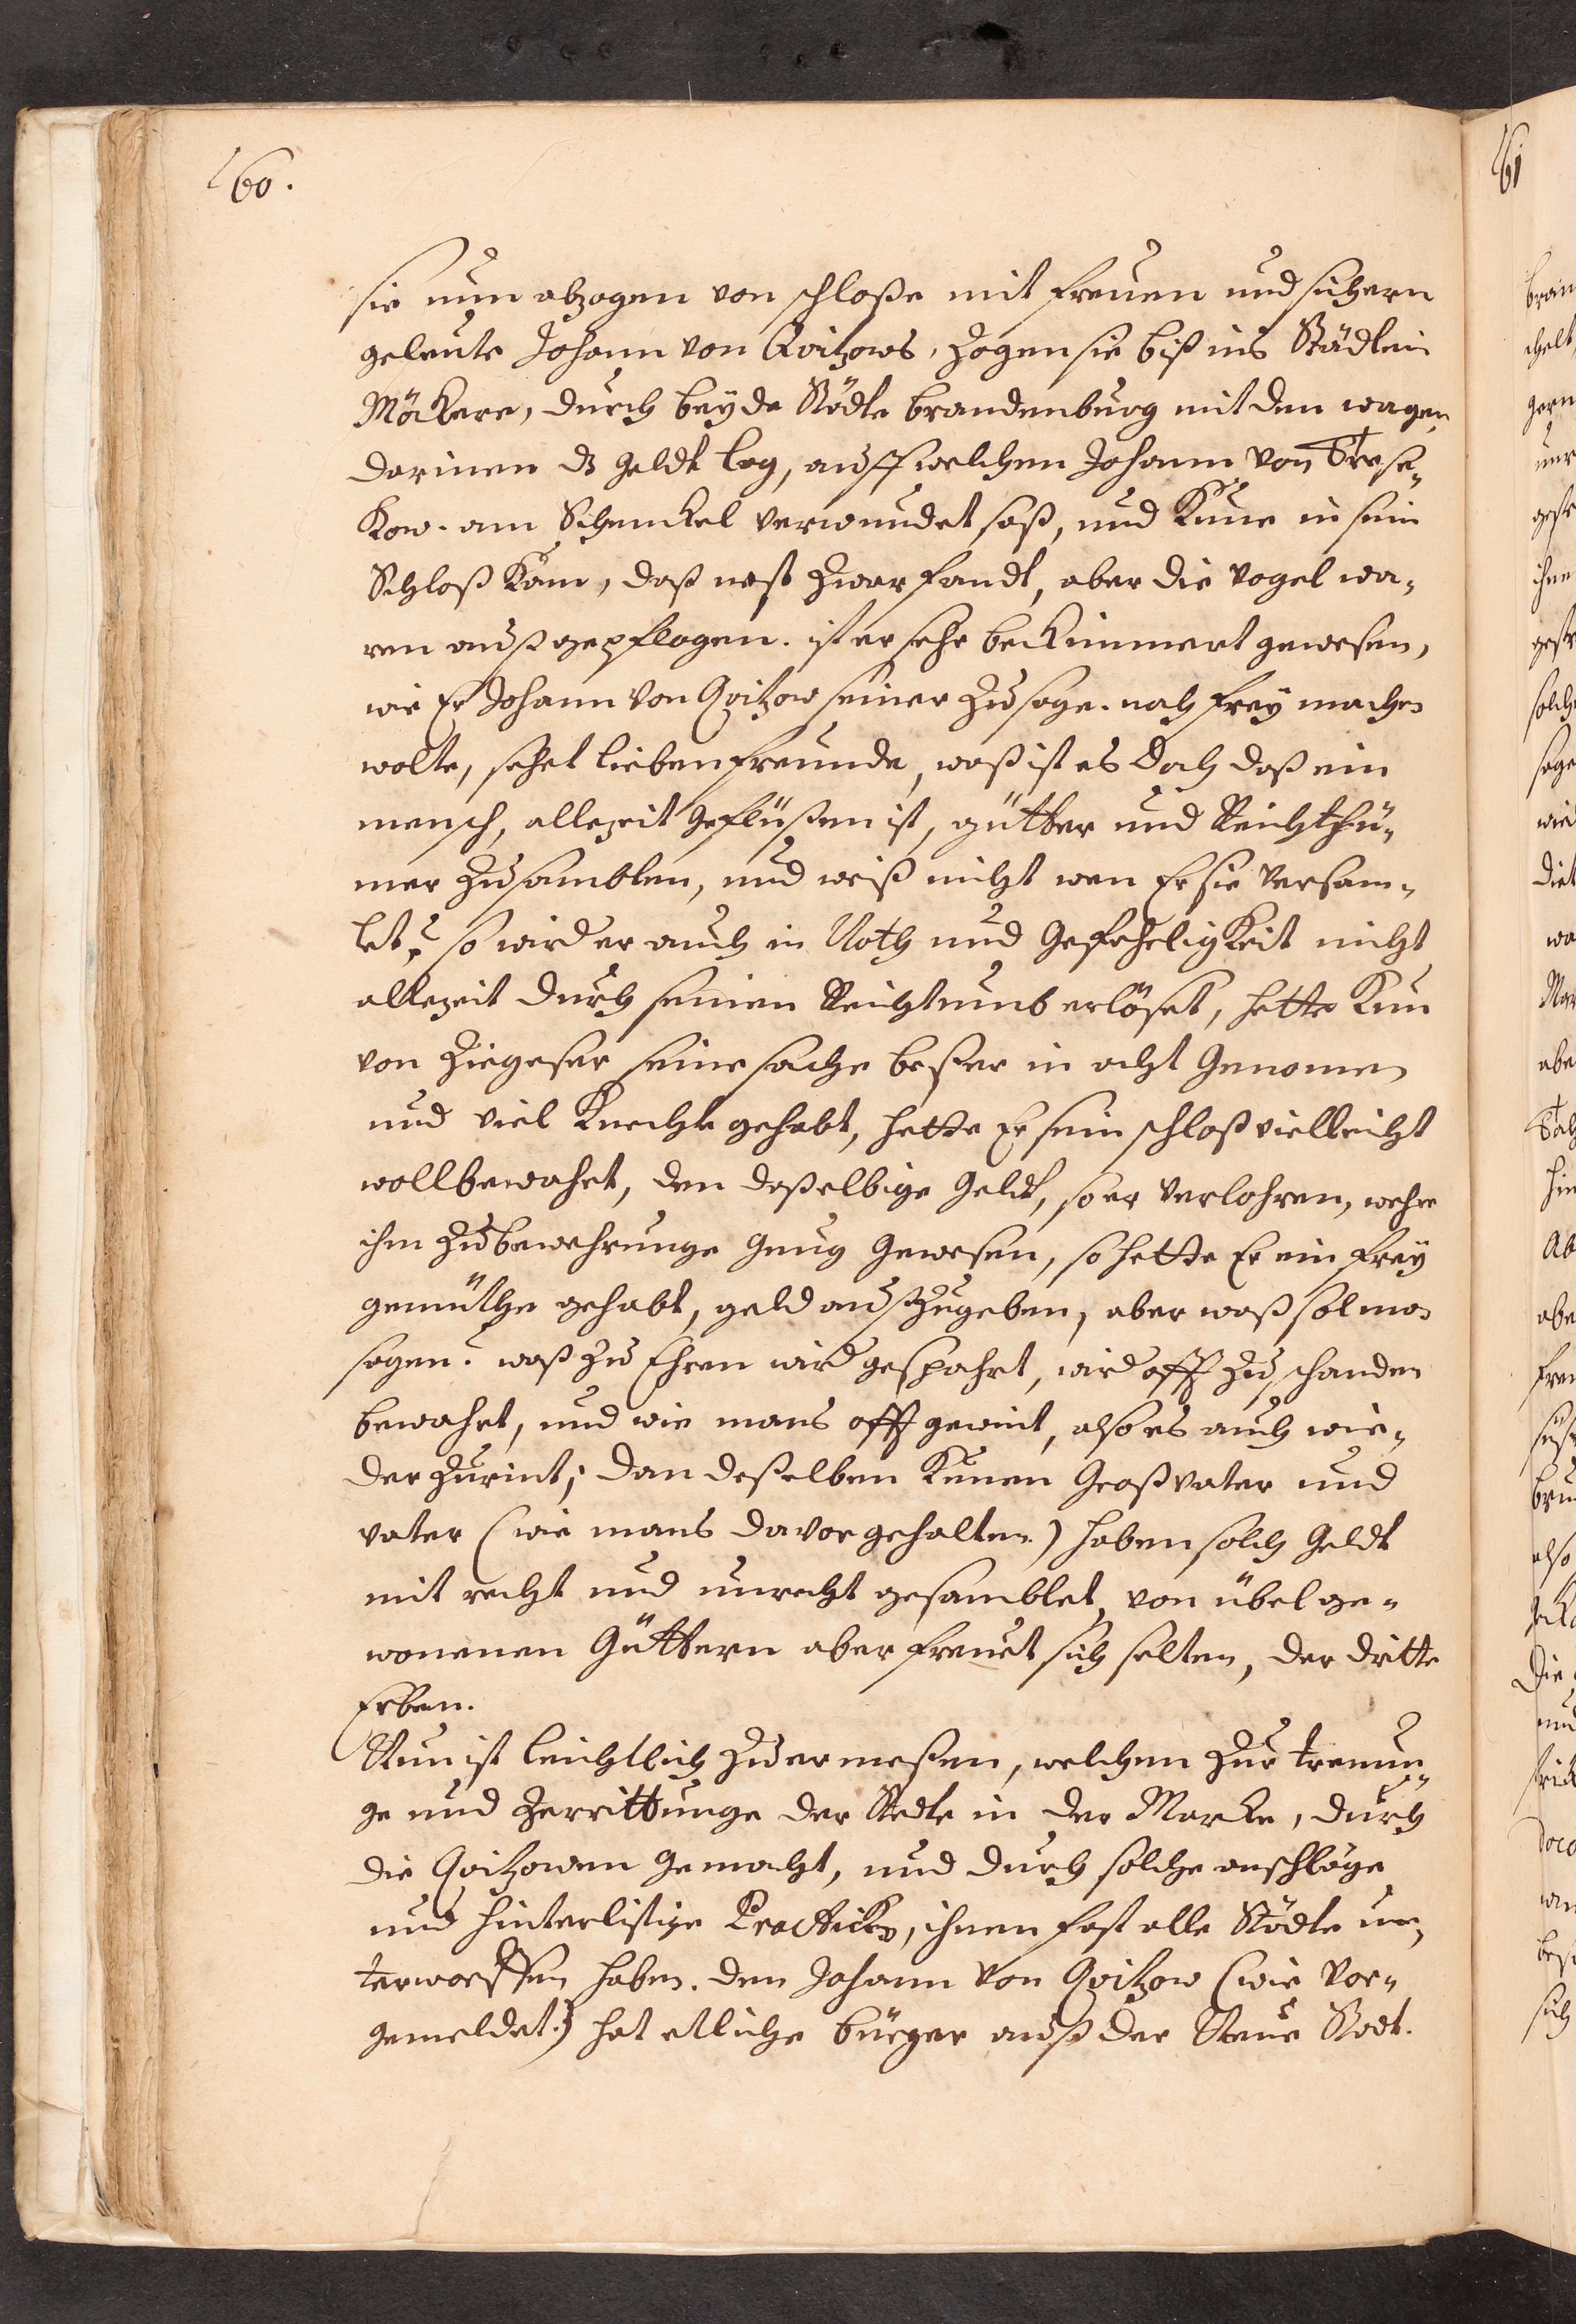 160.
sie nun abzogen von schloße mit freuen und sichern
geleute Johann von Qvitzows, zogen sie biß ins Städtlein
Möckere, durch beyde Städte brandenburg mit den wagen
darinnen dz geldt lag, auff welchen Johann von Trese-
kow. am Schenckel verwundet saß, und Kune in sein
Schloß kam, daß nest zwar fandt, aber die vogel wa-
ren außgepflogen. ist er sehr beckümmert gewesen,
wie Er Johann von Qvitzow seiner zusage. nach frey machen
wolte, sehet lieben freunde, waß ist es doch daß ein
mensch, allezeit geflüßen ist, gütter und Reichthü-
mer zusamblen, und weiß nicht wen Er sie versam-
let? so wird er auch in Noth und Gefehrligkeit nicht
allezeit durch seinen Reichtumb erlöset, hette Kun
von Ziegeser seine sache beßer in acht Genomen
und viel Knechte gehabt, hette Er sein schloß vielleicht
wollbewahrt, den daßelbige geldt, so er verlohren, wehre
ihm zu bewehrunge gnug Gewesen, so hette Er ein frey
gemüthe gehabt, geld außzugeben, aber waß sol man
sagen? waß zu Ehren wird gespahrt, wird offt zu schanden
bewahrt, und wie mans offt gewint, also es auch wie-
der zurint; dan deßelben Kunen Großvater und
vater (wie mans davor gehalten) haben solch geldt
mit recht und unrecht gesamblet, von übel ge-
wonenen Güttern aber freuet sich selten, der dritte
Erben.
Nun ist leichtlich zu ermeßen, welchen zur trennun-
ge und Zerrittunge der Stedte in der Marcke, durch
die Qvitzowen gemacht, und durch solche anschläge
und hinterlistige Practicken, ihnen fast alle Städte un-
terworffen haben. den Johann von Qvitzow (wie vor-
gemeldet) hat etliche bürger auß der Neue Stadt.